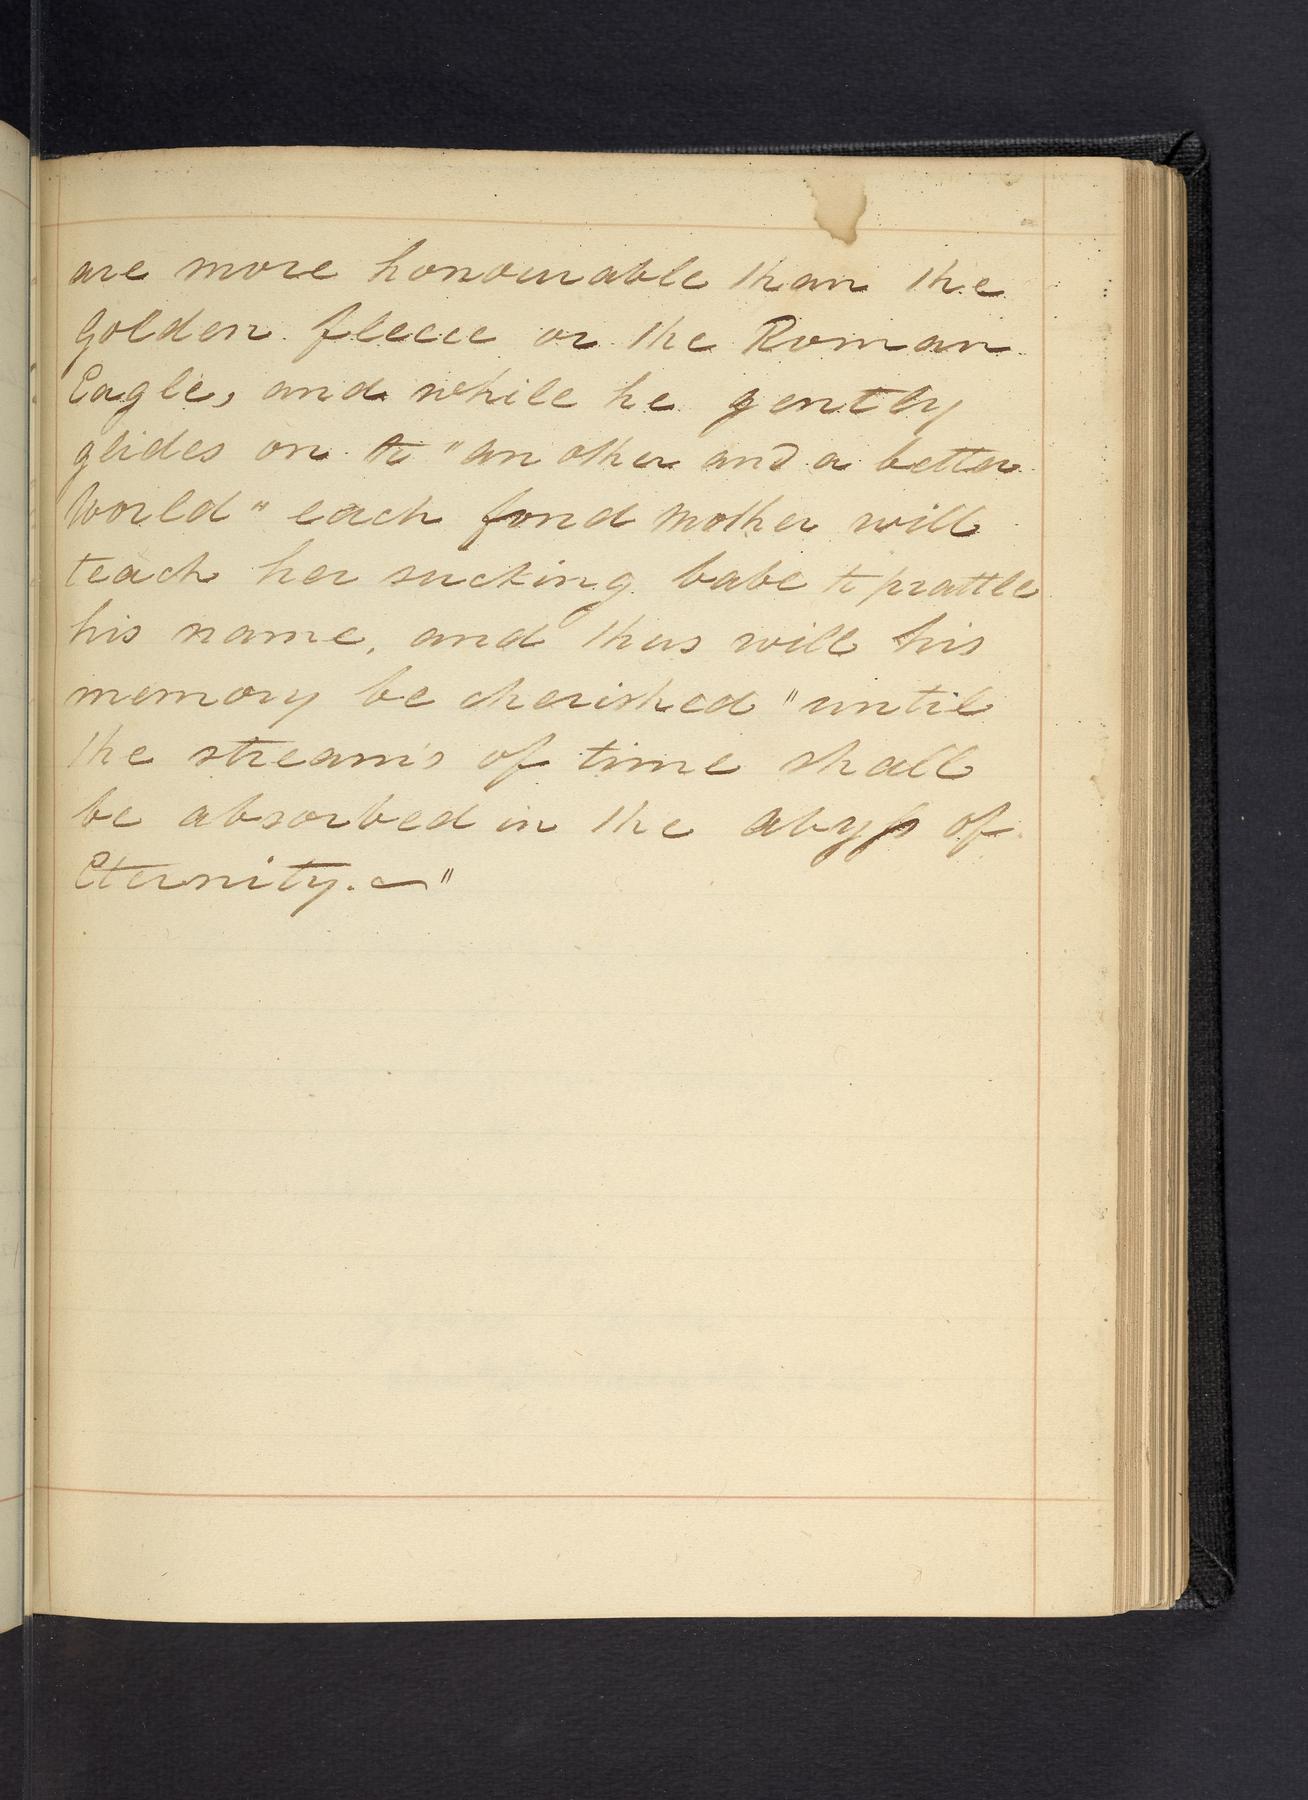 are more honourable than the
Golden fleece or the Roman
Eagle, and while he gently
glides on to "an other and a better
World" each fond Mother will
teach her sucking babe to prattle
his name, and thus will his
memory be cherished "until
the stream's of time shall
be absorbed in the abyss of
Eternity. —"